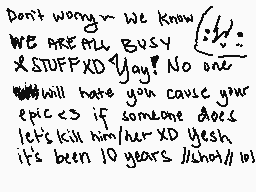 Don't worry~ We know
WE ARE ALL BUSY
& STUFF XD Yay! No one
will hate you cause your
epic <3 if someone does
let's kill him/her XD Yesh
it's been 10 years //shot// lol